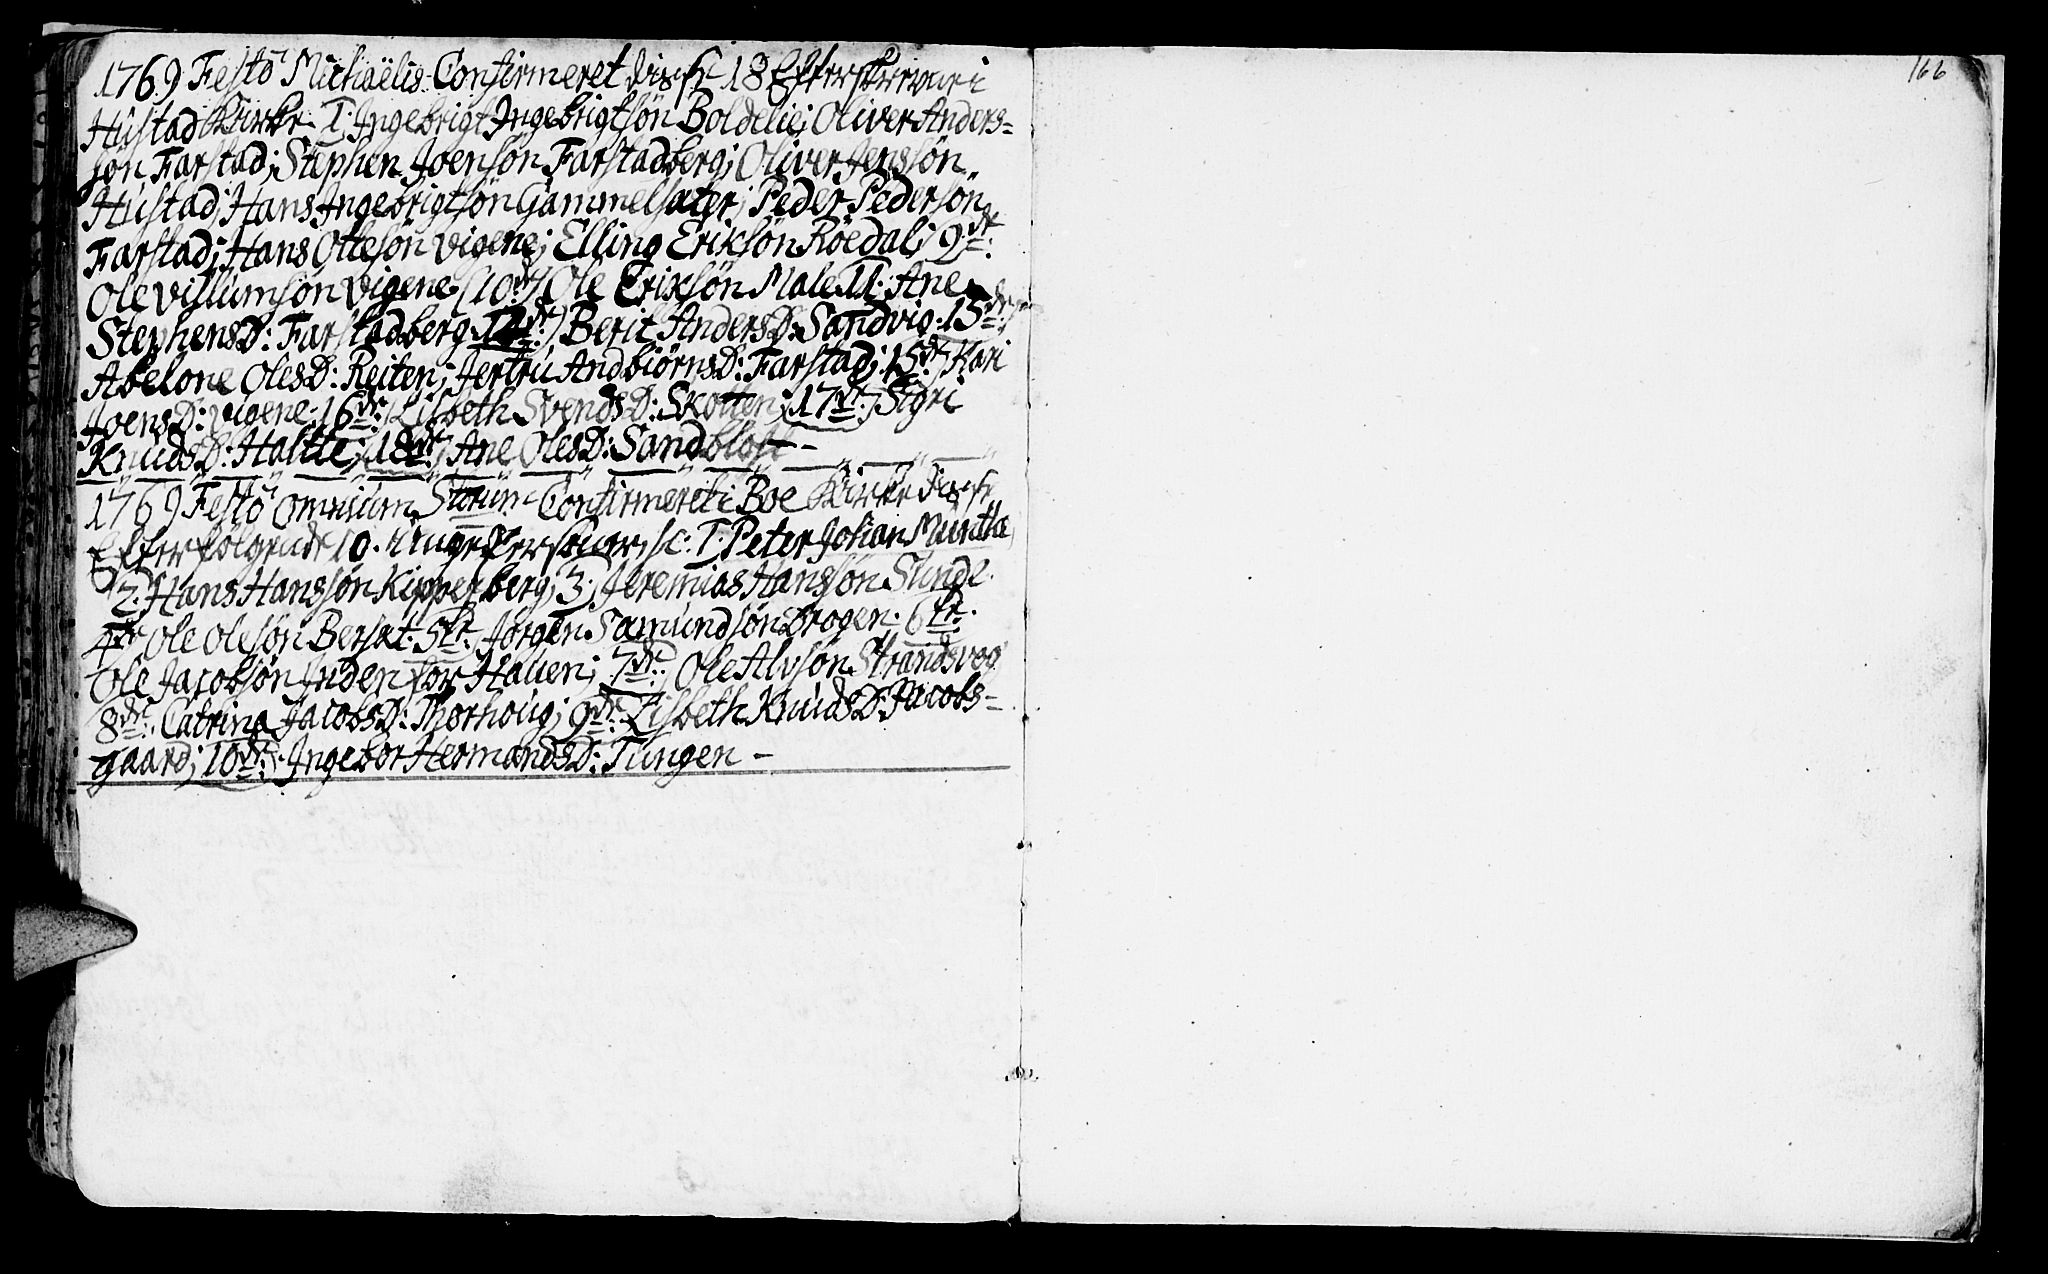 1769 Festo Michaëlis Confirmeret disse 18 Efterskrevne i
Hustad Kirke 1. Ingebrigt Ingebrigtsøn Boldelie; Oliver Anders-
søn Farstad; Stephen Joensøn Farstadberg; Oliver Jenssøn
Hustad; Hans Ingebrigtsøn Gammelsæter; Peder Pedersøn
Farstad; Hans Ottesøn Vigene; Elling Eriksøn Röedal; 9de:
Ole Villumsøn Vigene (10de) Ole Eriksøn Male 11. Ane
StephensD: Farstadberg 12de:) Berit AndersD: Sandvig. 13de:
Abelone OlesD: Reiten; Jertru AndbiörnsD: Farstad; 15de) Kari
JoensD: Vigene; 16de) Lisbeth SvendsD: Skotten; 17de:) Sigri
KnudsD: Haltle; 18de) Ane OlesD: Sandblost –
1769 Festo Omnium Storum Confirmeret i Boe Kirke disse
Efterfølgende 10. unge Personer, sc: 1. Peter Johan Munthe
2. Hans Hanssøn Kipperberg; 3; Jeremias Hanssøn Sunde.
4de Ole Olesøn Bersæt. 5te Jørgen Samundsøn Drogen. 6te.
Ole Jacobsøn Inden for Hauen; 7de: Ole Alvsøn Strandsvog
8de. Catrina JacobsD: Thorhoug; 9de. Lisbeth KnudsD: Jacobs-
gaard; 10de: Ingebor HermandsD: Tungen –
166